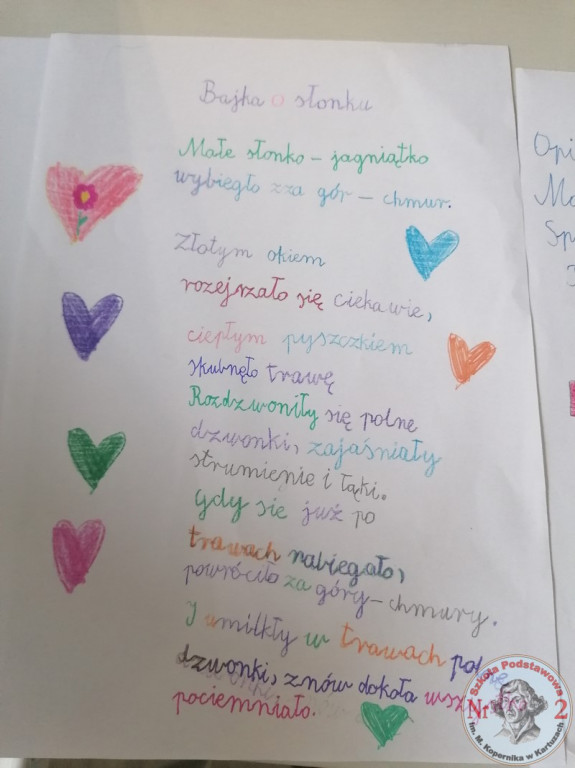 Bajka o słonku
Małe słonko – jagniątko
wybiegło zza gór – chmur.
Złotym okiem
rozejrzało się ciekawie,
ciepłym pyszczkiem
skubnęło trawę
Rozdzwoniły się polne
dzwonki, zajaśniały
strumienie i łąki.
Gdy się już po
trawach nabiegało,
powróciło za góry – chmury.
I umilkły w trawach polne
dzwonki, znów dokoła
pociemniało.
Opi
Ma
Sp
Szkoła Podstawowa
Nr 2
im. M. Kopernika w Kartuzach